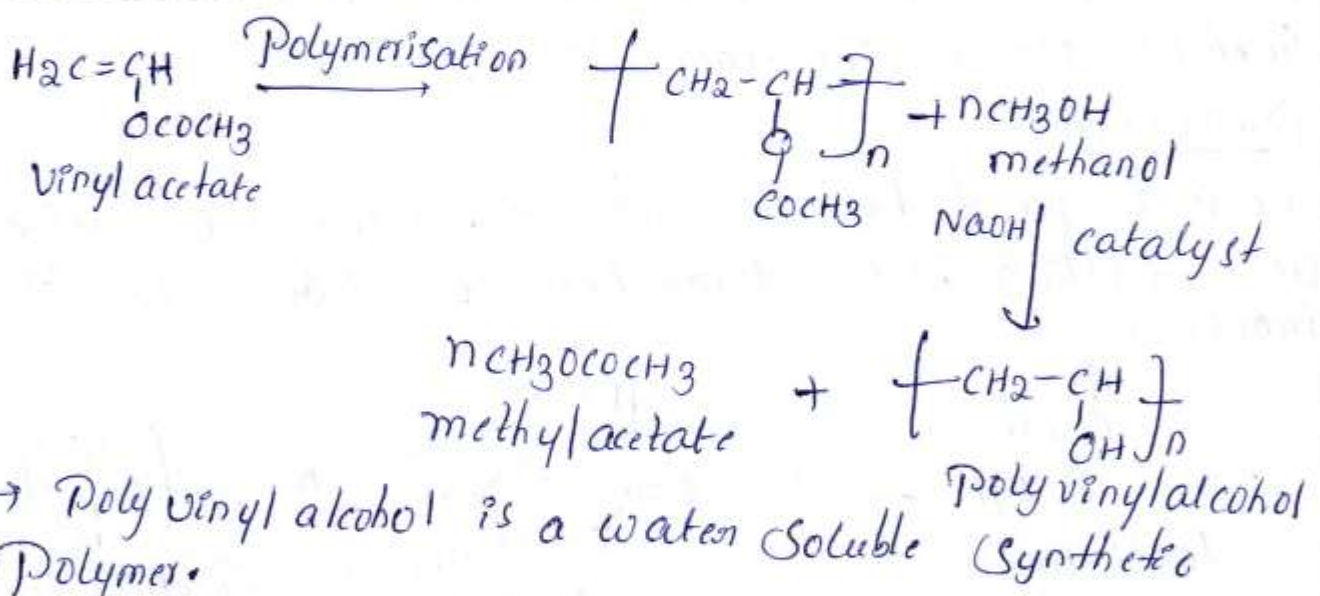 H2C=CH Polymerisation [CH2-CH]n + nCH3OH
OCOCH3 O methanol
vinyl acetate COCH3 NaOH catalyst
nCH3OCOCH3 + [CH2-CH]n
methylacetate OH
Polyvinylalcohol
→ Poly vinyl alcohol is a water soluble synthetic
Polymer.